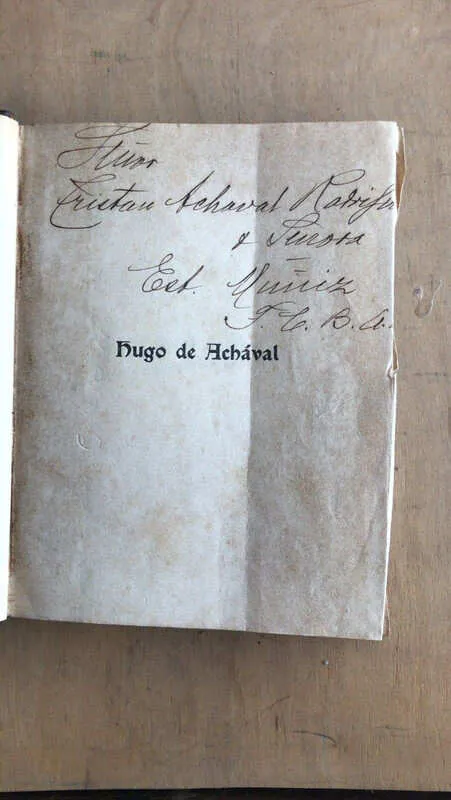 Señor
Tristan Achaval Rodrigu
& Señora
Est. Muñiz
F. C. B. A.
Hugo de Achával